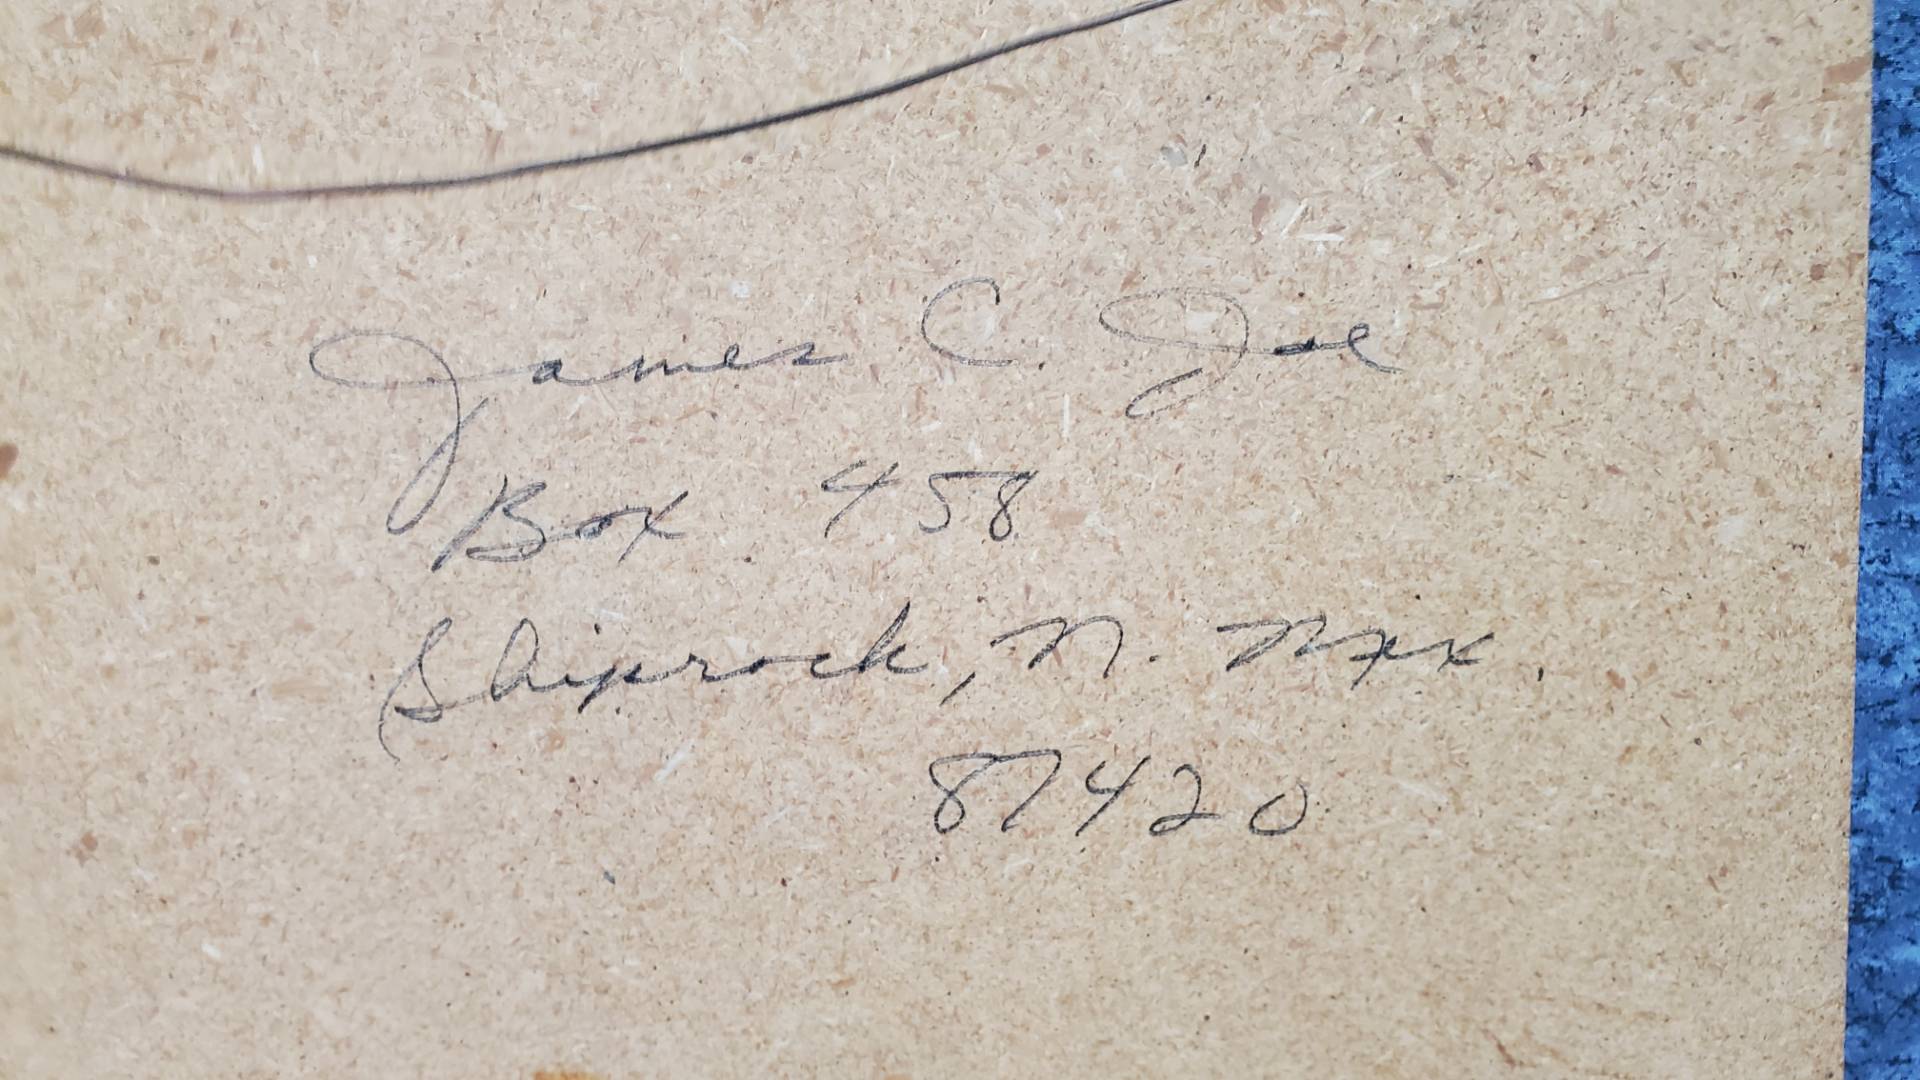 James C. Joe
Box 458
Shiprock, N. Mex.
87420